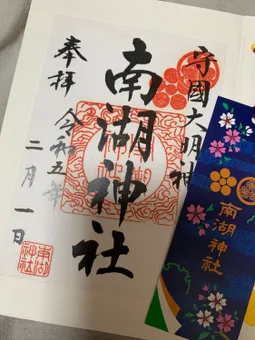 守國大明神
南湖神社
奉拝
令和五年
二月一日
南湖神社
南湖神社